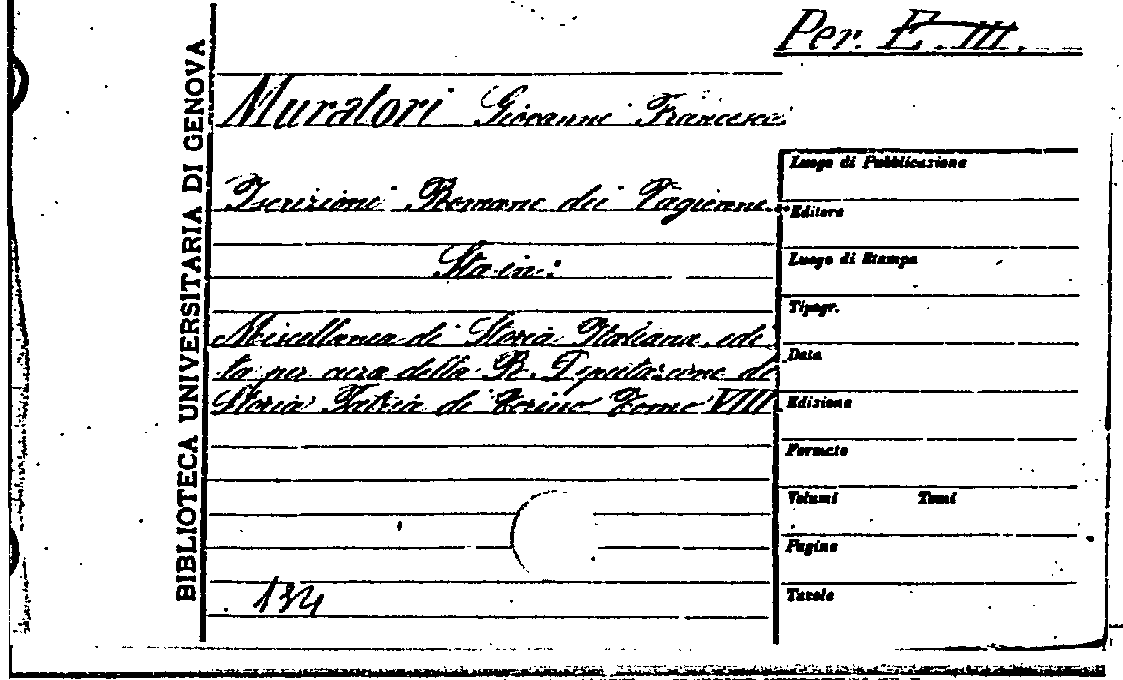 Per. E. III.
BIBLIOTECA UNIVERSITARIA DI GENOVA
Muratori Giovanni Francesco
Iscrizioni Romane dei Vagienni.
Sta in:
Miscellanea di Storia Italiana, edi
ta per cura della R. Deputazione di
Storia Patria di Torino Tomo VIII
134
Luogo di Pubblicazione
Editore
Luogo di Stampa
Tipogr.
Data
Edizione
Formato
Volumi Tomi
Pagine
Tavole